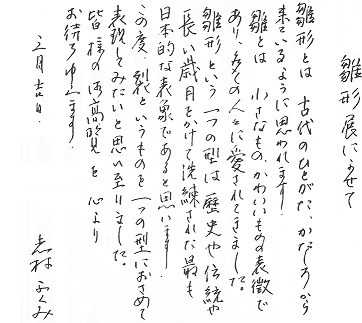 雛形展によせて
雛形とは 古代のひとがた、かたしろから
来ているように思われます。
雛とは 小さなもの、かわいいもの表徴で
あり、多くの人々に愛されてきました。
雛形という一つの型は歴史や伝統や
長い歳月をかけて洗練された最も
日本的な表象であると思います。
この度、裂というものを一つの型におさめて
表現してみたいと思い至りました。
皆様の御高覧を心より
お待ち申し上げます。
二月吉日
志村ふくみ